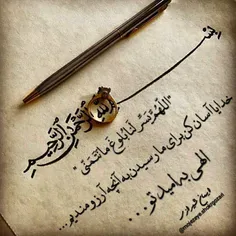 بسم الله الرحمن الرحیم
"اللهم یسر لنا بلوغ ما نتمنی"
خدایا آسان کن برای ما رسیدن به آنچه آرزومندیم...
الهی به امید تو...